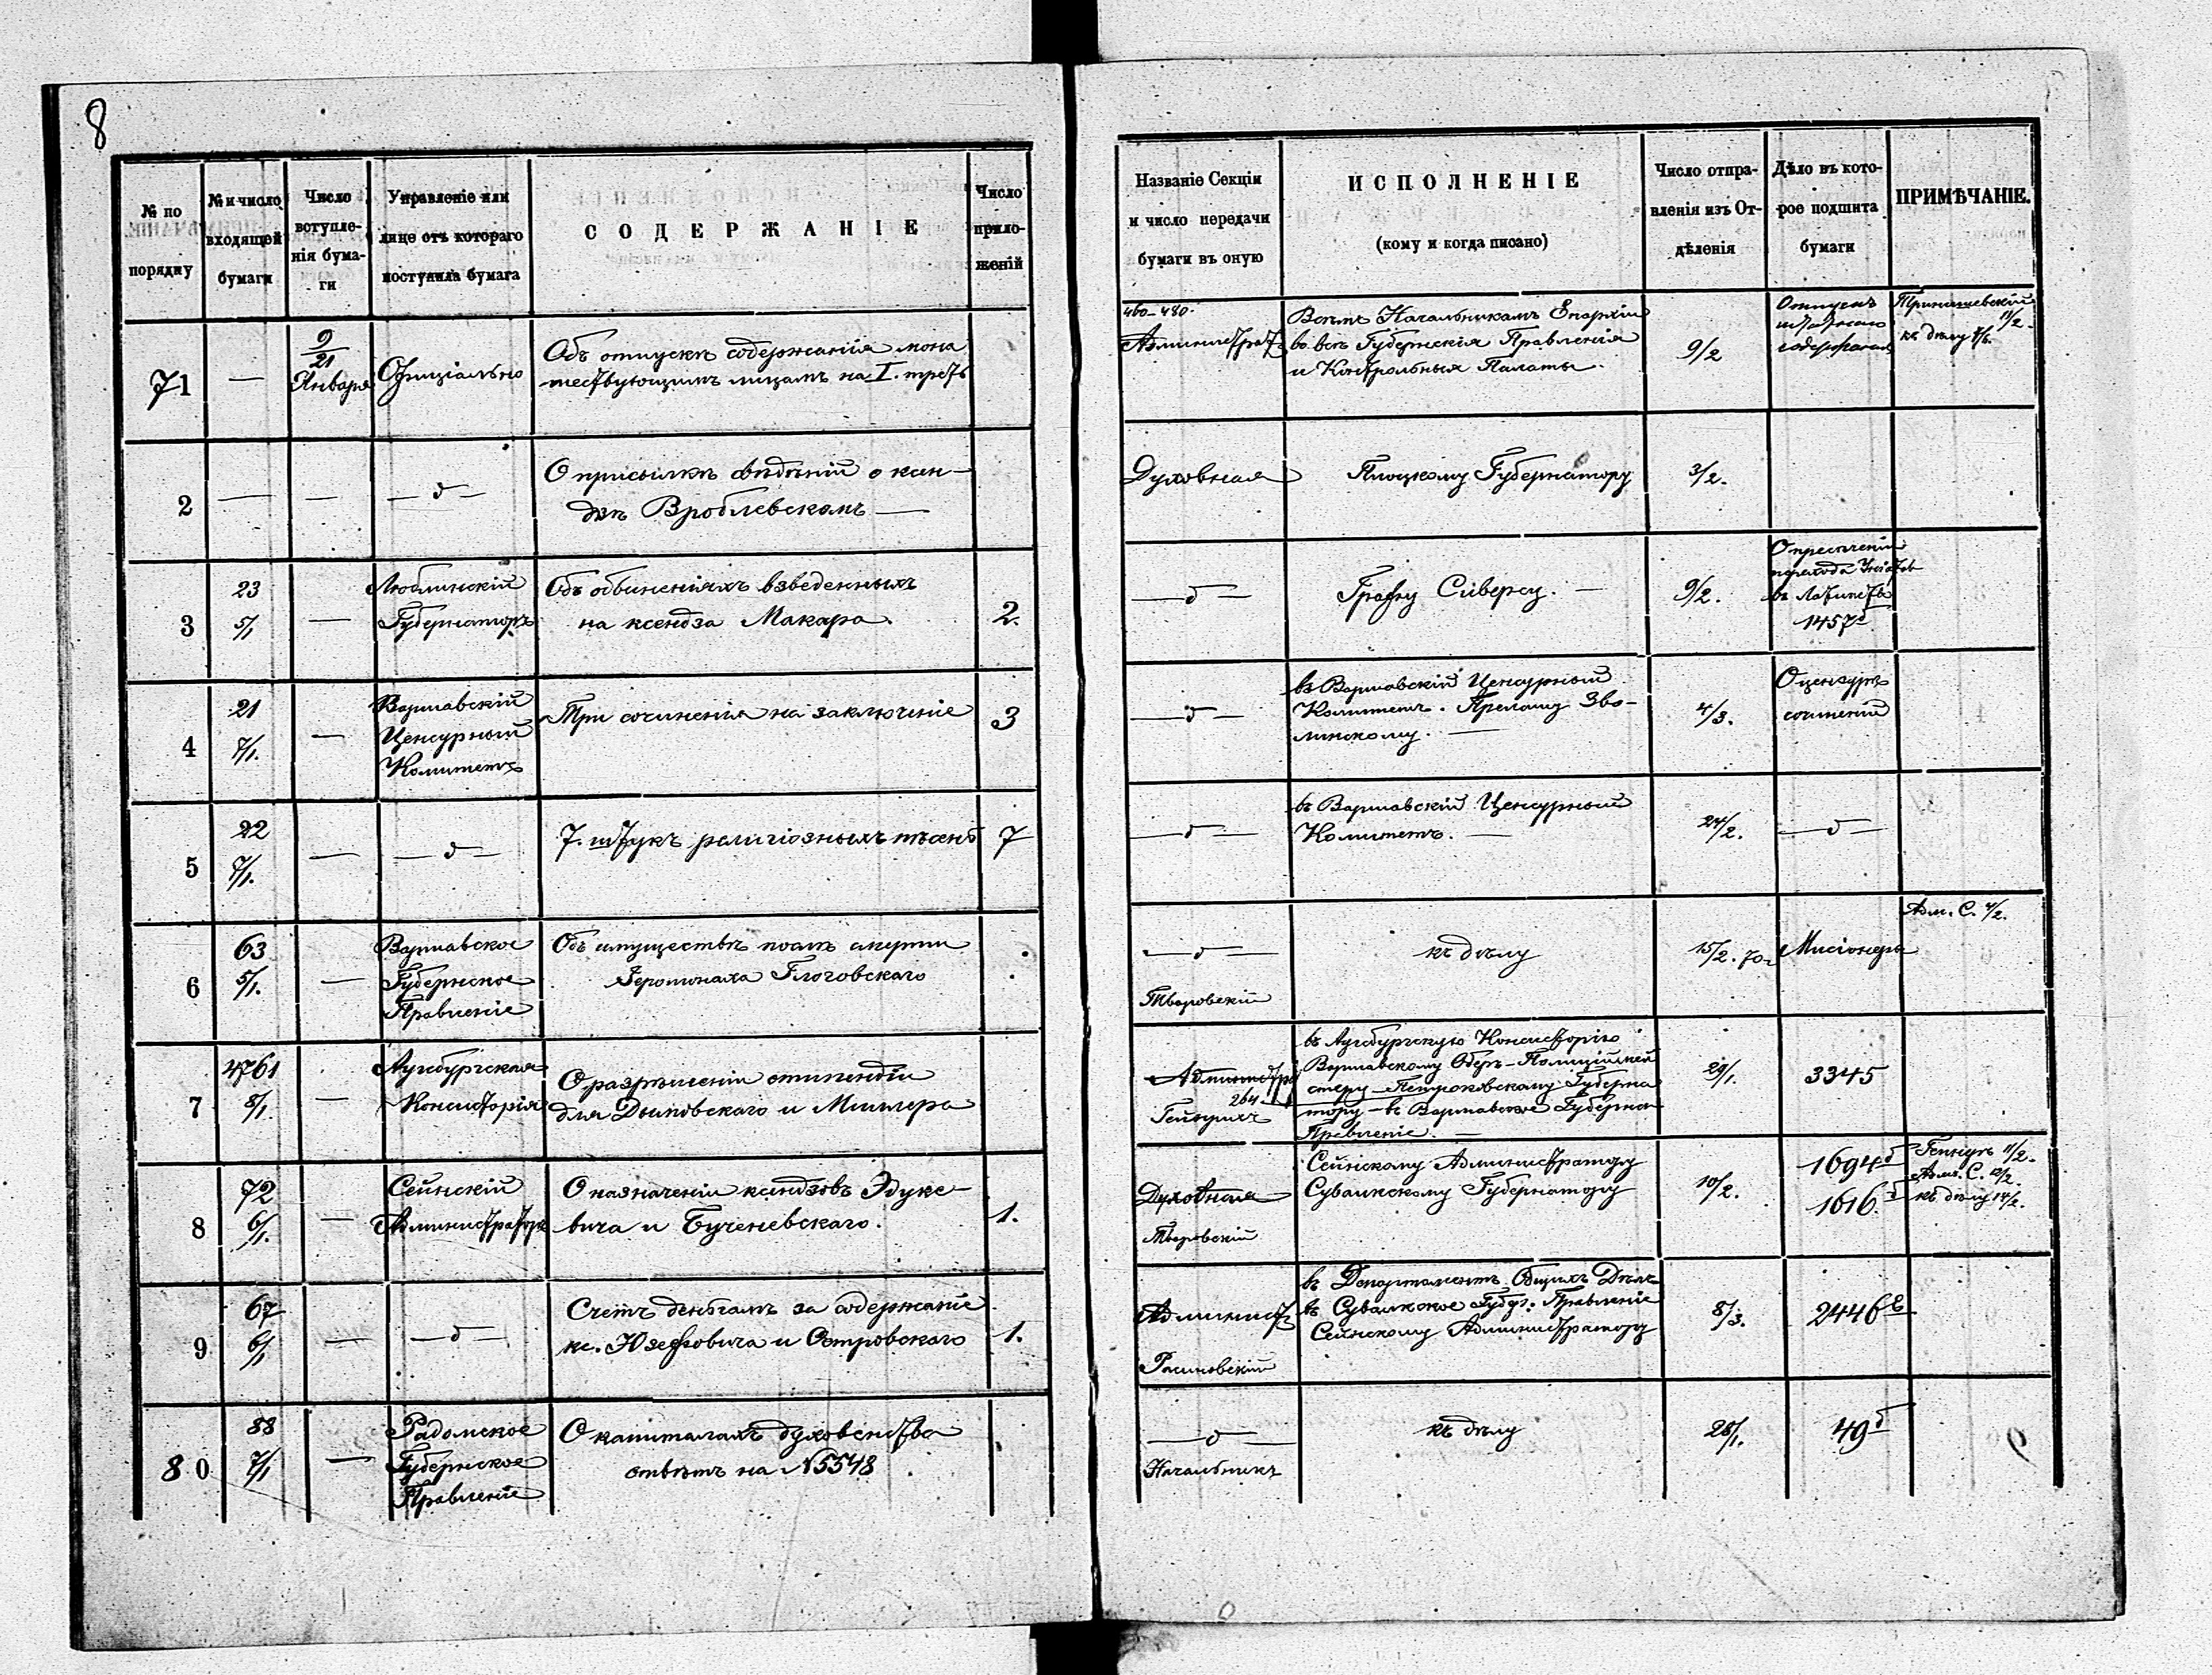 8
№ по порядку
№ и число входящей бумаги
Число вступленія бумаги
Управленіе или лице отъ котораго поступила бумага
СОДЕРЖАНІЕ
Число приложеній
Названіе Секціи и число передачи бумаги въ оную
ИСПОЛНЕНІЕ
(кому и когда писано)
Число отправленія изъ Отдѣленія
Дѣло въ которое подшита бумаги
ПРИМѢЧАНІЕ.
71
—
9/21 Января
Офиціально
Объ отпускѣ содержанія мона
шествующимъ лицамъ на I. треть
460-480.
Администра
Всѣмъ Начальникамъ Епархій
во всѣ Губернскія Правленія
и Контрольныя Палаты.
9/2
Отпускъ
штатнаго
содержанія
11/2.
къ дѣлу
2
—
—
— d —
О присылкѣ свѣдѣній о ксен-
дзѣ Врублевскомъ —
Духовная
Плоцкому Губернатору
3/2.
3
23
5/1
—
Люблинскій
Губернаторъ
Объ обвиненіяхъ взведенныхъ
на ксендза Макара.
2.
— d —
Графу Сиверсу. —
9/2.
О пресѣченіи
перехода Уніатовъ
въ Латинство
1457
4
21
7/1.
—
Варшавскій
Ценсурный
Комитетъ
Три сочиненія на заключеніе
3
— d —
въ Варшавскій Ценсурный
Комитетъ. Прелату Зво-
линскому. —
4/3.
О цензурѣ
сочиненій
5
22
7/1.
—
— d —
7. штукъ религіозныхъ пѣсенъ
7
— d —
въ Варшавскій Ценсурный
Комитетъ. —
24/2.
— d —
6
63
5/1.
—
Варшавское
Губернское
Правленіе
Объ имуществѣ послѣ смерти
Іеромонаха Глоговскаго
— d —
Тваровскій
къ дѣлу
15/2.
Мисіонеры
Адм. С. 4/2.
7
4761
8/1.
—
Аугсбургская
Консисторія
О разрѣшеніи стипендіи
для Дымовскаго и Миллера
264.
Гейнрихъ
въ Аугсбургскую Консисторію
Варшавскому Оберъ-Полиціймей
стеру — Петроковскому Губерна
тору — въ Варшавское Губернск
Правленіе. —
29/1.
3345
8
72
6/1.
—
Сейнскій
Администраторъ
О назначеніи ксендзовъ Эдуке-
вича и Бученевскаго.
1.
Духовная
Тваровскій
Сейнскому Администратору
Сувалкскому Губернатору
10/2.
1694
1616
11/2.
Адм. С. 12/2.
къ дѣлу 14/2.
9
67
6/1
—
— d —
Счетъ деньгамъ за содержаніе
кс. Юзефовича и Островскаго
1.
Админист
Расиновскій
въ Департаментъ Общихъ Дѣлъ
въ Сувалкское Губер. Правленіе
Сейнскому Администратору
8/3.
2446
80
88
7/1
—
Радомское
Губернское
Правленіе
О капиталахъ духовенства
отвѣтъ на №5548
— d —
Начальникъ
къ дѣлу
28/1.
49